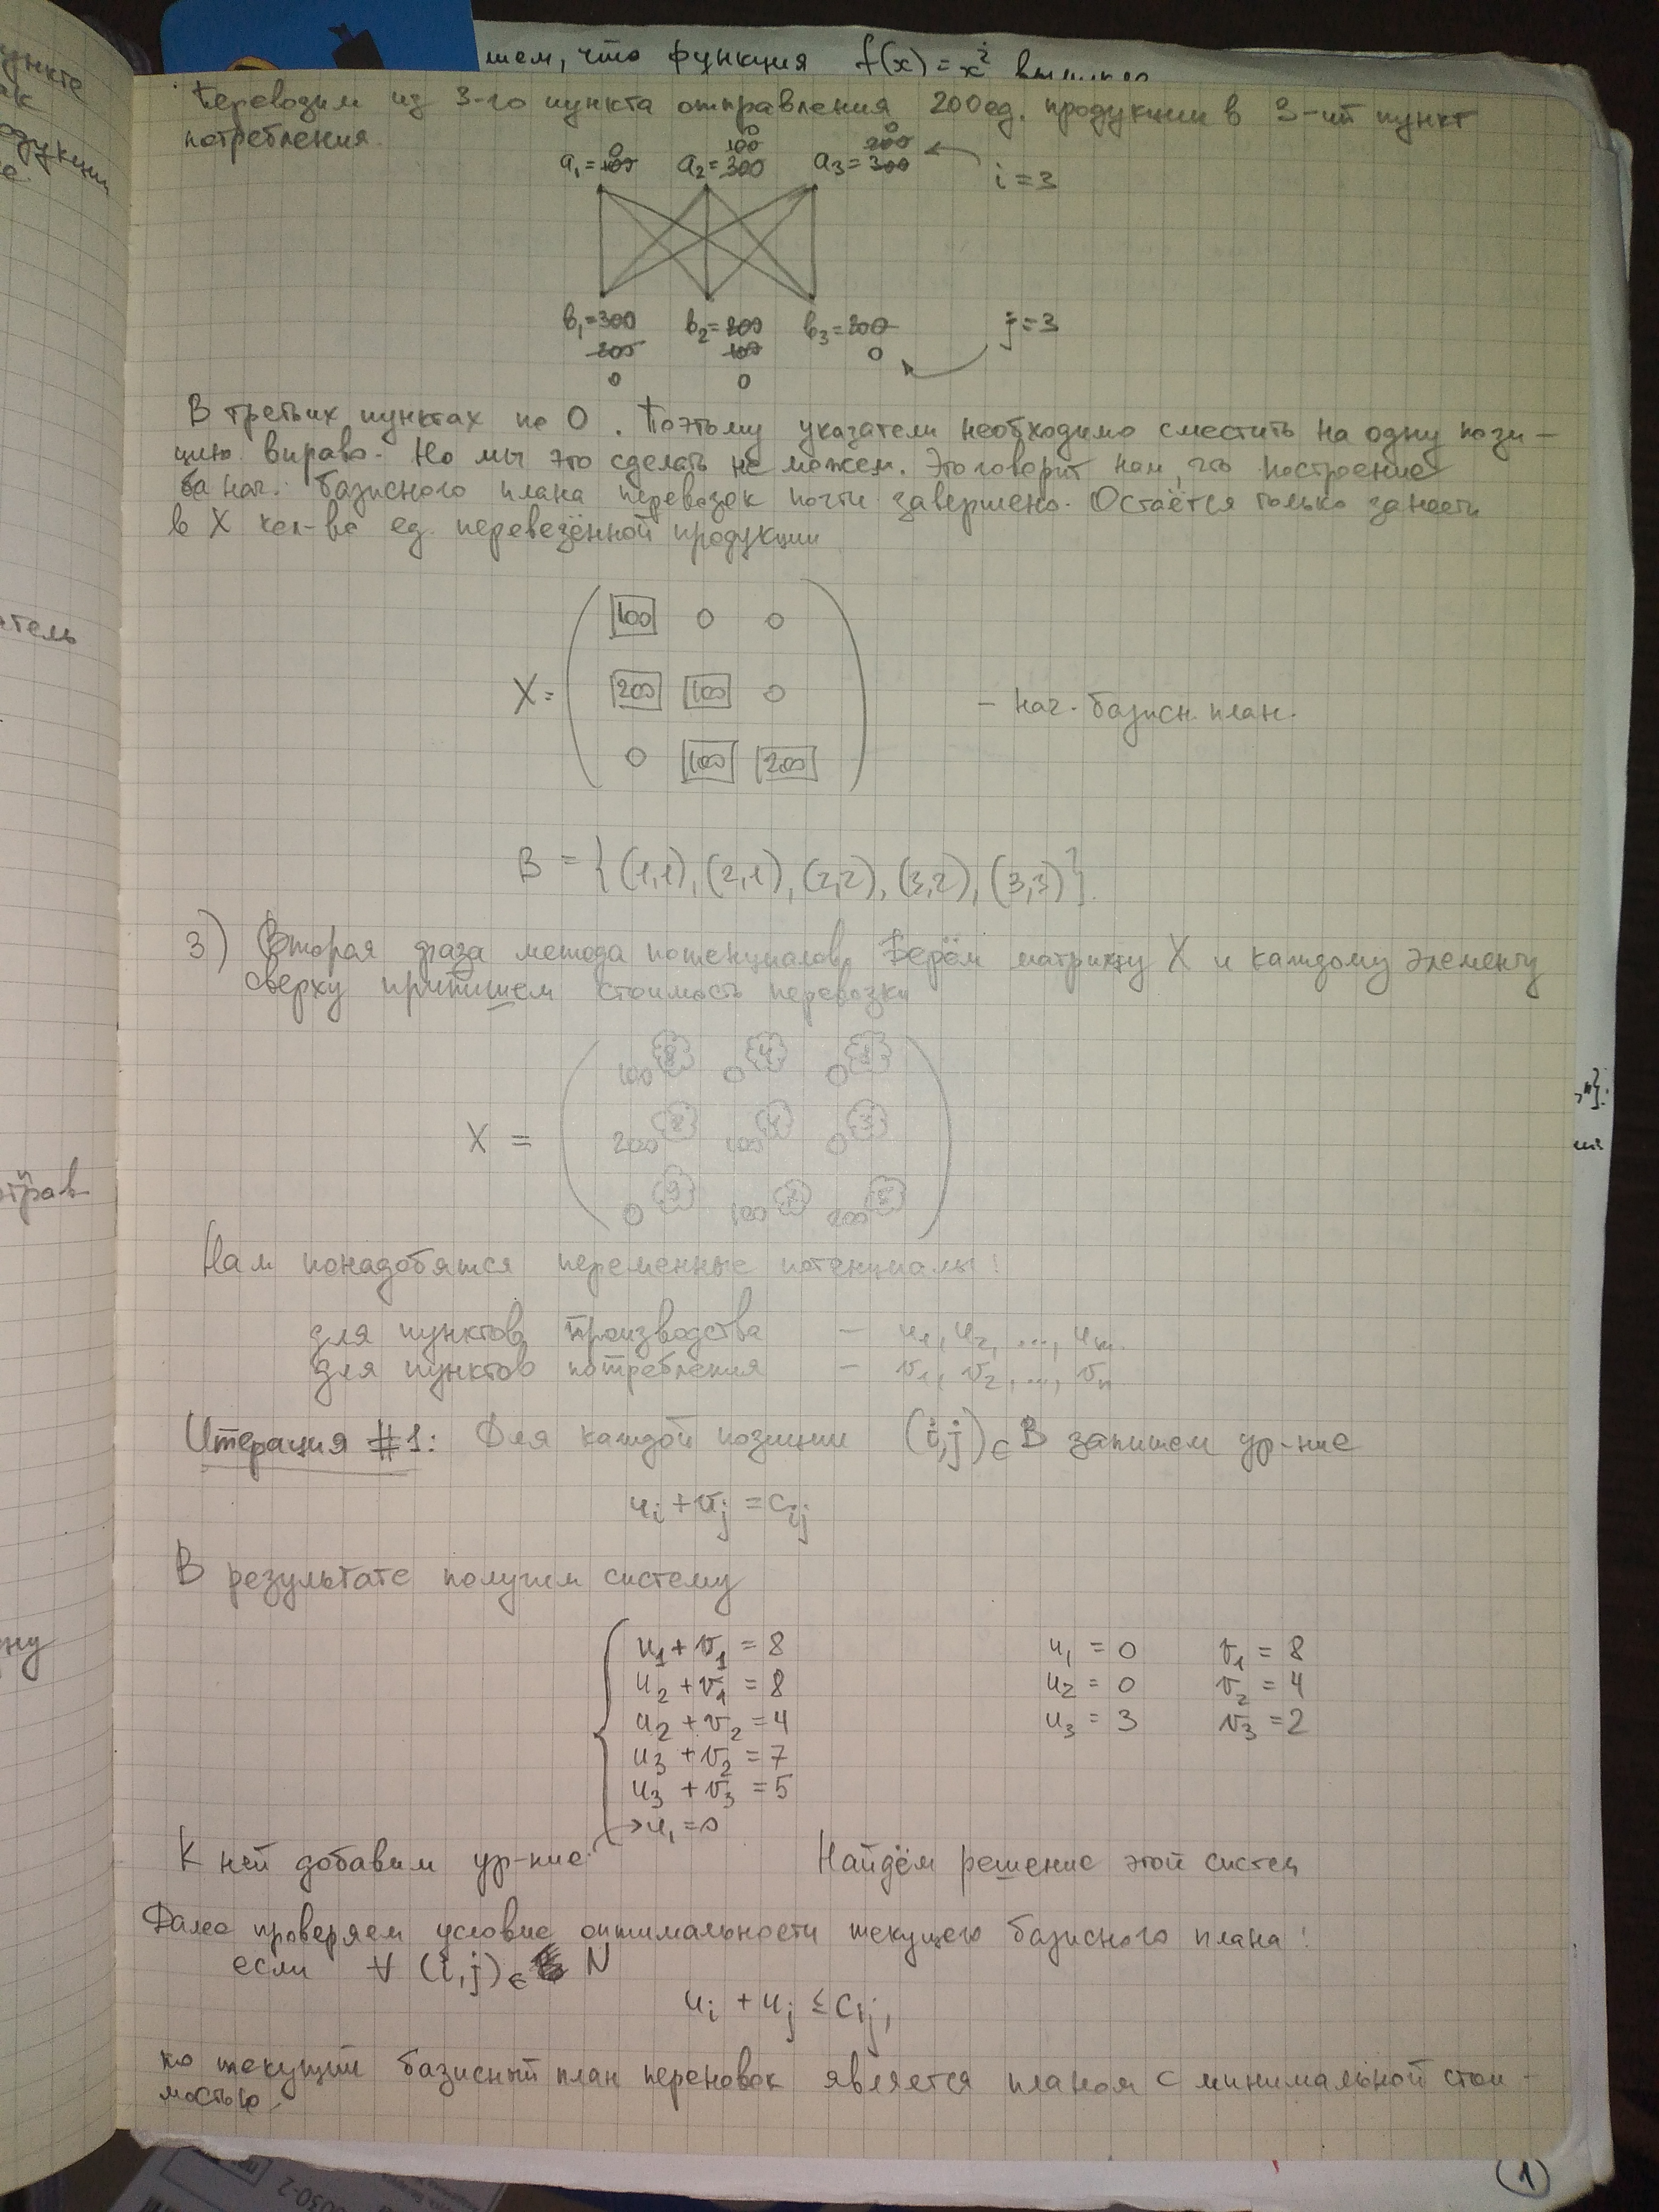 ункте
ак
одукции
е.
тель
отрав
ну
шем, что функция f(x)=x²
Перевозим из 3-го пункта отправления 200 ед. продукции в 3-ий пункт
потребления.
0 100 0 200 0
a₁=100 a₂=300 a₃=300 i=3
b₁=300 b₂=200 b₃=200 j=3
200 100 0
0 0
В третьих пунктах по 0. Поэтому указатели необходимо сместить на одну пози-
цию вправо. Но мы это сделать не можем. Это говорит нам, что построение
нач. базисного плана перевозок почти завершено. Остаётся только занести
в X кол-во ед. перевезённой продукции
100 0 0
X= 200 100 0 - нач. базисн. план.
0 100 200
B = {(1,1), (2,1), (2,2), (3,2), (3,3)}.
3) Вторая фаза метода потенциалов. Берём матрицу X и каждому элементу
сверху припишем стоимость перевозки
100 8 0 4 0
X = 200 8 100 4 0 3
0 9 100 7 200 5
Нам понадобятся переменные потенциалы:
для пунктов производства – u₁, u₂, ..., uₘ.
для пунктов потребления – v₁, v₂, ..., vₙ
Итерация #1: Для каждой позиции (i,j)∈B запишем ур-ние
uᵢ + vⱼ = cᵢⱼ
В результате получим систему
u₁ + v₁ = 8 u₁ = 0 v₁ = 8
u₂ + v₁ = 8 u₂ = 0 v₂ = 4
u₂ + v₂ = 4 u₃ = 3 v₃ = 2
u₃ + v₂ = 7
u₃ + v₃ = 5
→ u₁ = 0
К ней добавим ур-ние: Найдём решение этой систем
Далее проверяем условие оптимальности текущего базисного плана:
если ∀ (i,j)∈ N
uᵢ + uⱼ ≤ cᵢⱼ,
то текущий базисный план перевозок является планом с минимальной стои-
мостью.
(1)
0030-2